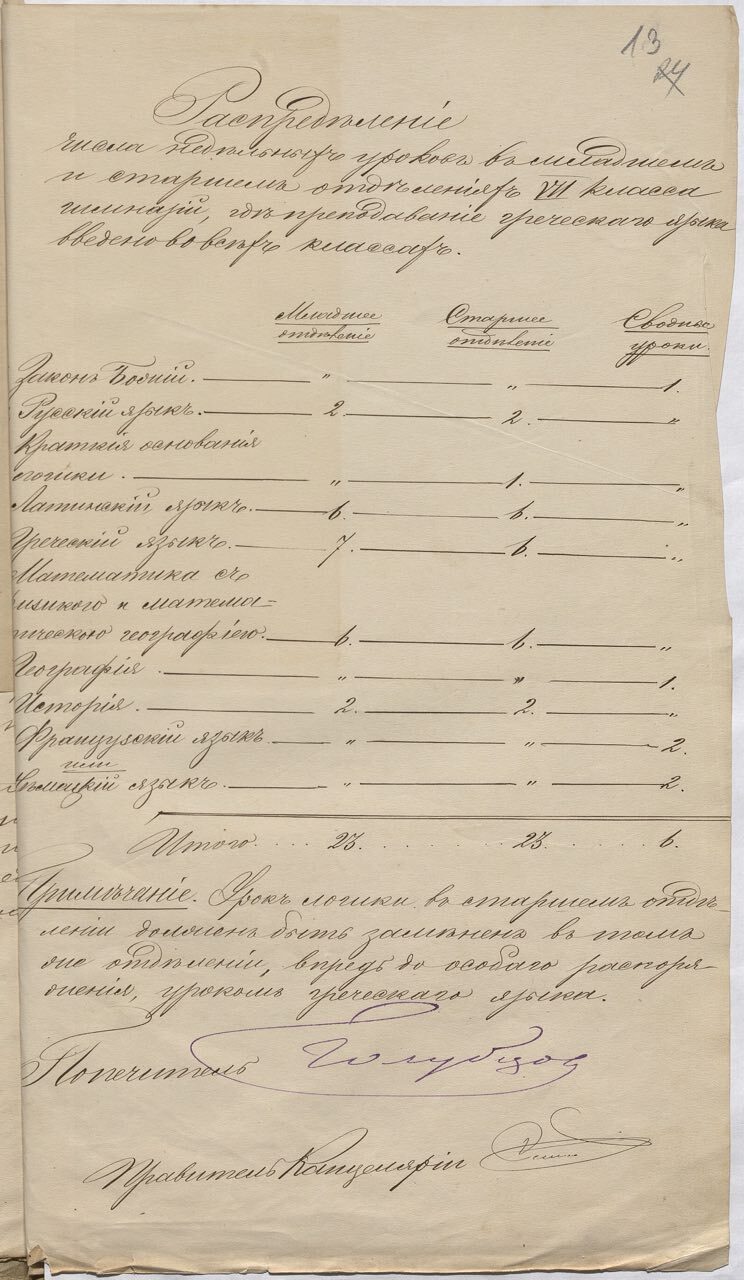 13
24
Распредѣленіе
числа недѣльныхъ уроковъ въ младшемъ
и старшемъ отдѣленіяхъ VII класса
гимназій, гдѣ преподаваніе греческаго языка
введено во всѣхъ классахъ.
Младшее отдѣленіе Старшее отдѣленіе Сводные уроки.
Законъ Божій. — „ — „ — 1.
Русскій языкъ. — 2. — 2. — „
Краткія основанія
логики. — „ — 1. — „
Латинскій языкъ. — 6. — 6. — „
Греческій языкъ. — 7. — 6. — „
Математика съ
физикою и матема=
тическою географіею. — 6. — 6. — „
Географія. — „ — „ — 1.
Исторія. — 2. — 2. — „
Французскій языкъ — „ — „ — 2.
или
Нѣмецкій языкъ. — „ — „ — 2.
Итого. . . . . 23. . . . . . 23. . . . . 6.
Примѣчаніе. Урокъ логики въ старшемъ отдѣ-
леніи долженъ быть замѣненъ въ томъ
же отдѣленіи, впредь до особаго распоря-
женія, урокомъ греческаго языка.
Попечитель Голубцов
Правитель Канцеляріи